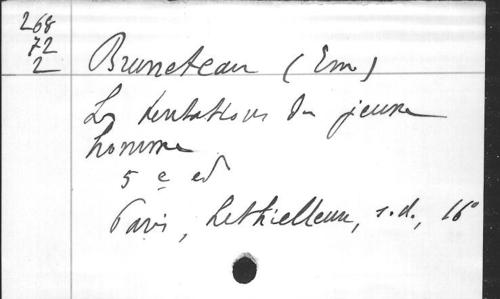 268
72
2
Bruneteau (Em)
Les tentations du jeune
homme
5e ed
Paris, Lethielleux, s.d., 16°